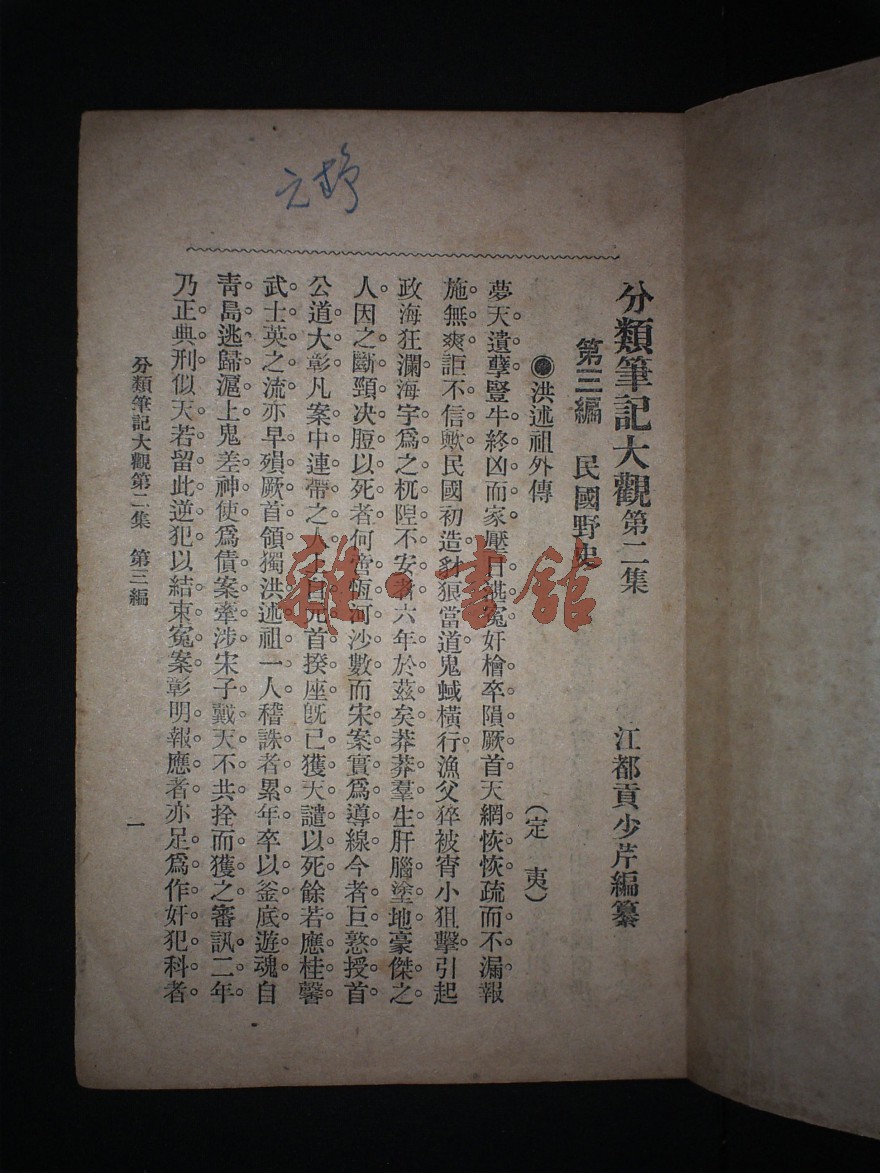 分類筆記大觀第二集
江都貢少芹編纂
第三編 民國野史
●洪述祖外傳
(定夷)
夢天遺孽豎牛終凶而家壓日謀寃奸檜卒隕厥首天網恢恢疏而不漏報
施無爽詎不信歟民國初造豺狼當道鬼蜮橫行漁父猝被宵小狙擊引起
政海狂瀾海宇爲之杌隉不安者六年於茲矣莽莽羣生肝腦塗地豪傑之
人因之斷頸決脰以死者何啻恆河沙數而宋案實爲導線今者巨憝授首
公道大彰凡案中連帶之人上自元首揆座旣已獲天譴以死餘若應桂馨
武士英之流亦早殞厥首領獨洪述祖一人稽誅者累年卒以釜底遊魂自
靑島逃歸滬上鬼差神使爲債案牽涉宋子戴天不共拴而獲之審訊二年
乃正典刑似天若留此逆犯以結束寃案彰明報應者亦足爲作奸犯科者
分類筆記大觀第二集 第三編
一
雜·書館